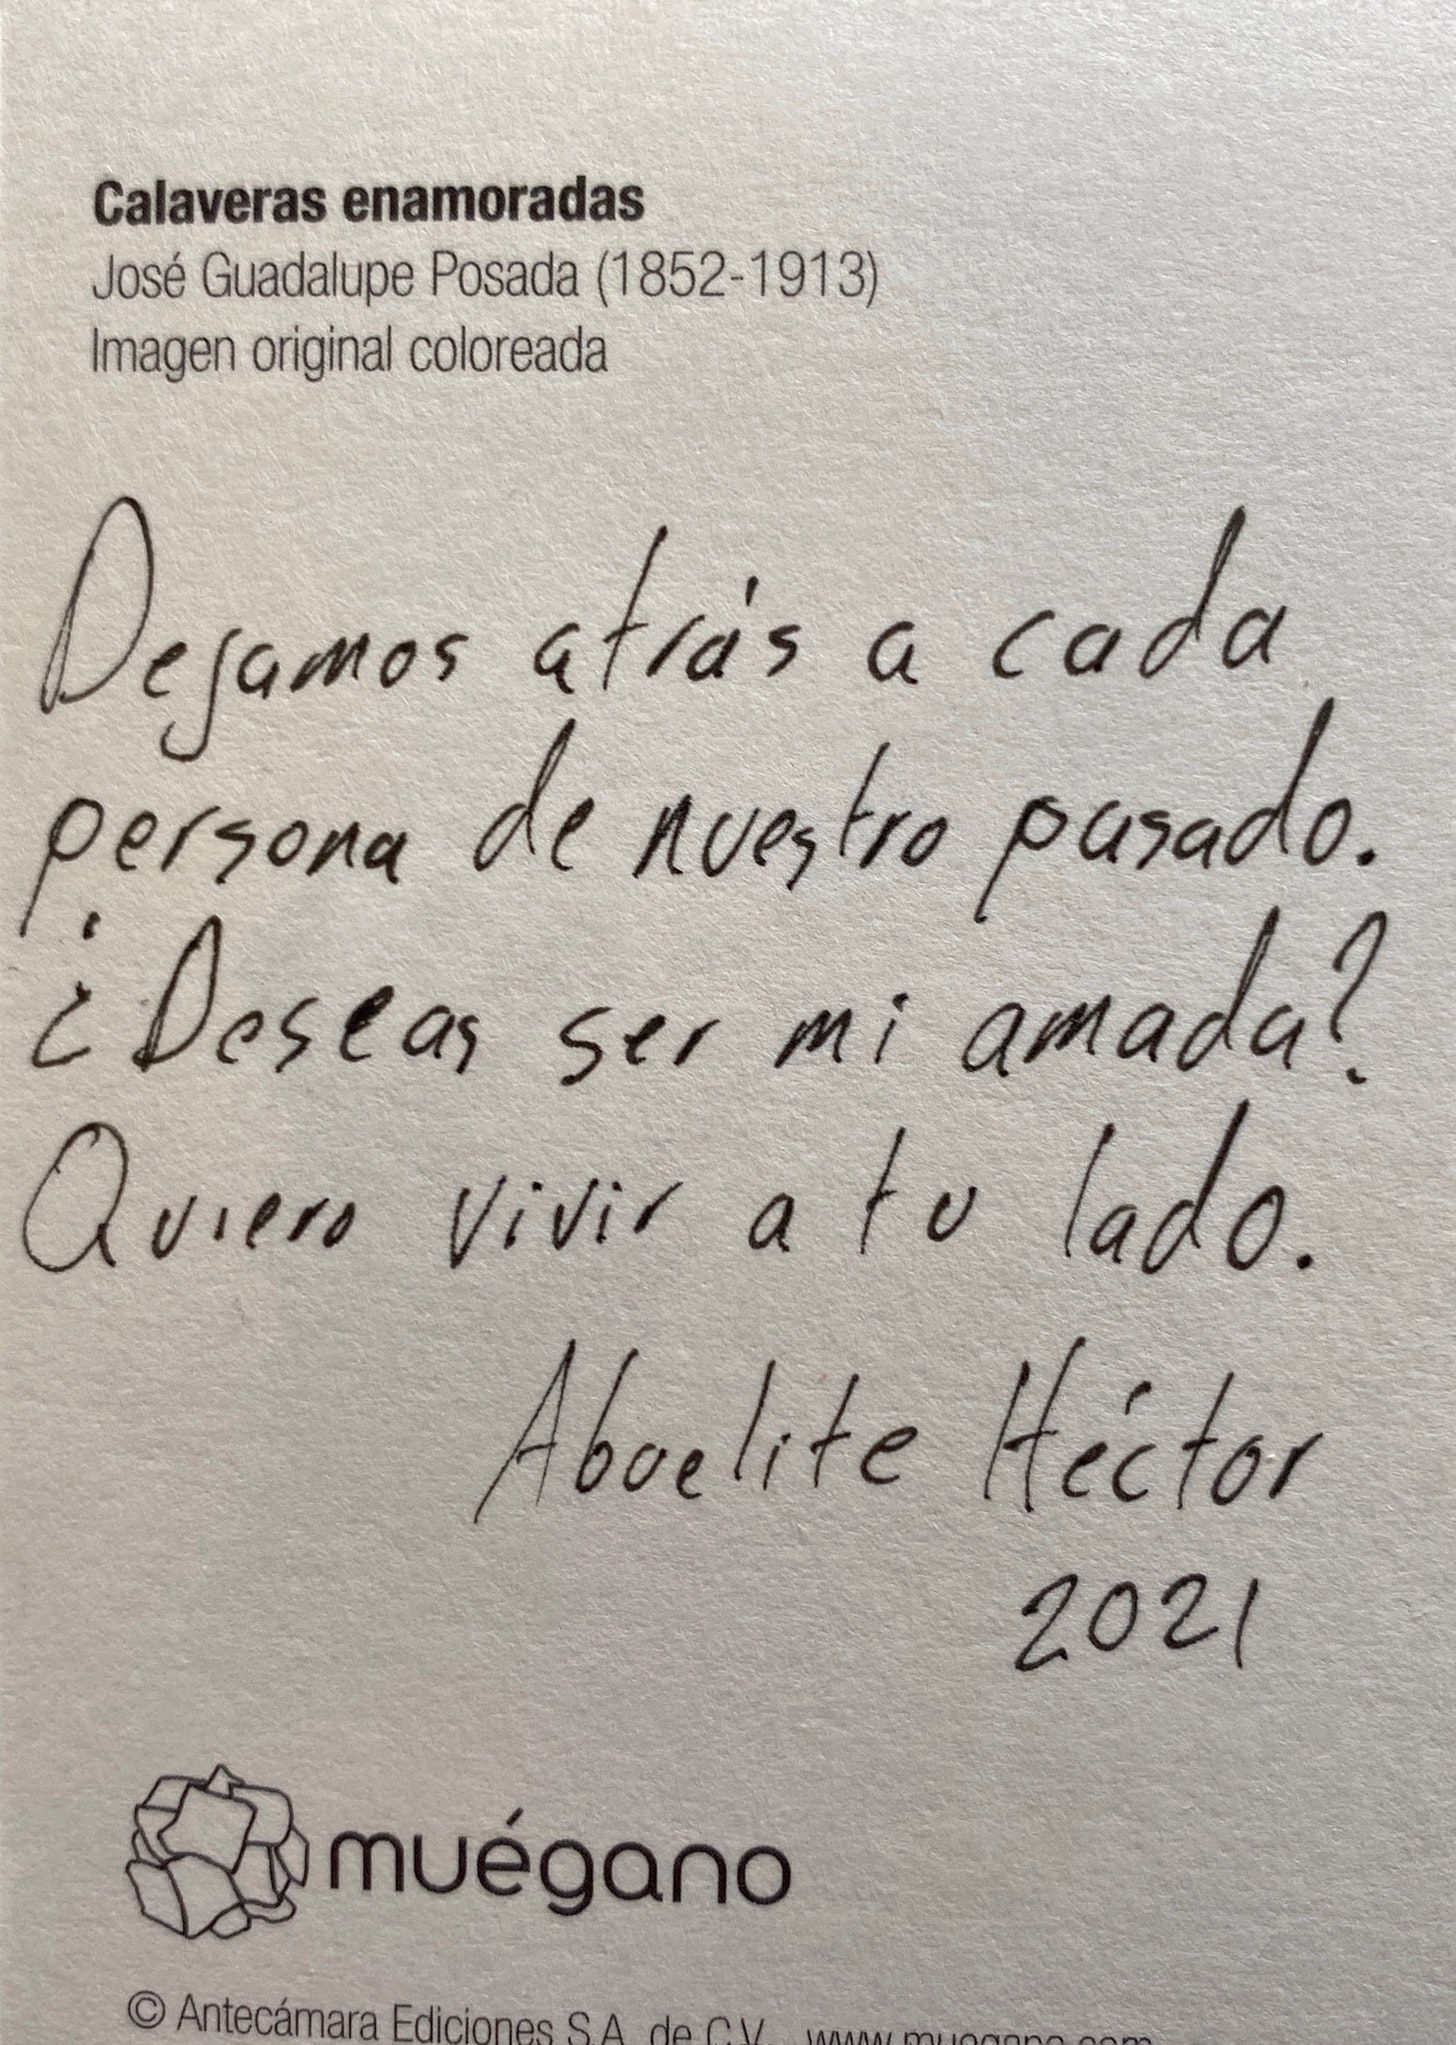 Calaveras enamoradas
José Guadalupe Posada (1852-1913)
Imagen original coloreada
Dejamos atrás a cada
persona de nuestro pasado.
¿Deseas ser mi amada?
Quiero vivir a tu lado.
Abuelite Héctor
2021
muégano
© Antecámara Ediciones S.A. de C.V. www.muegano.com